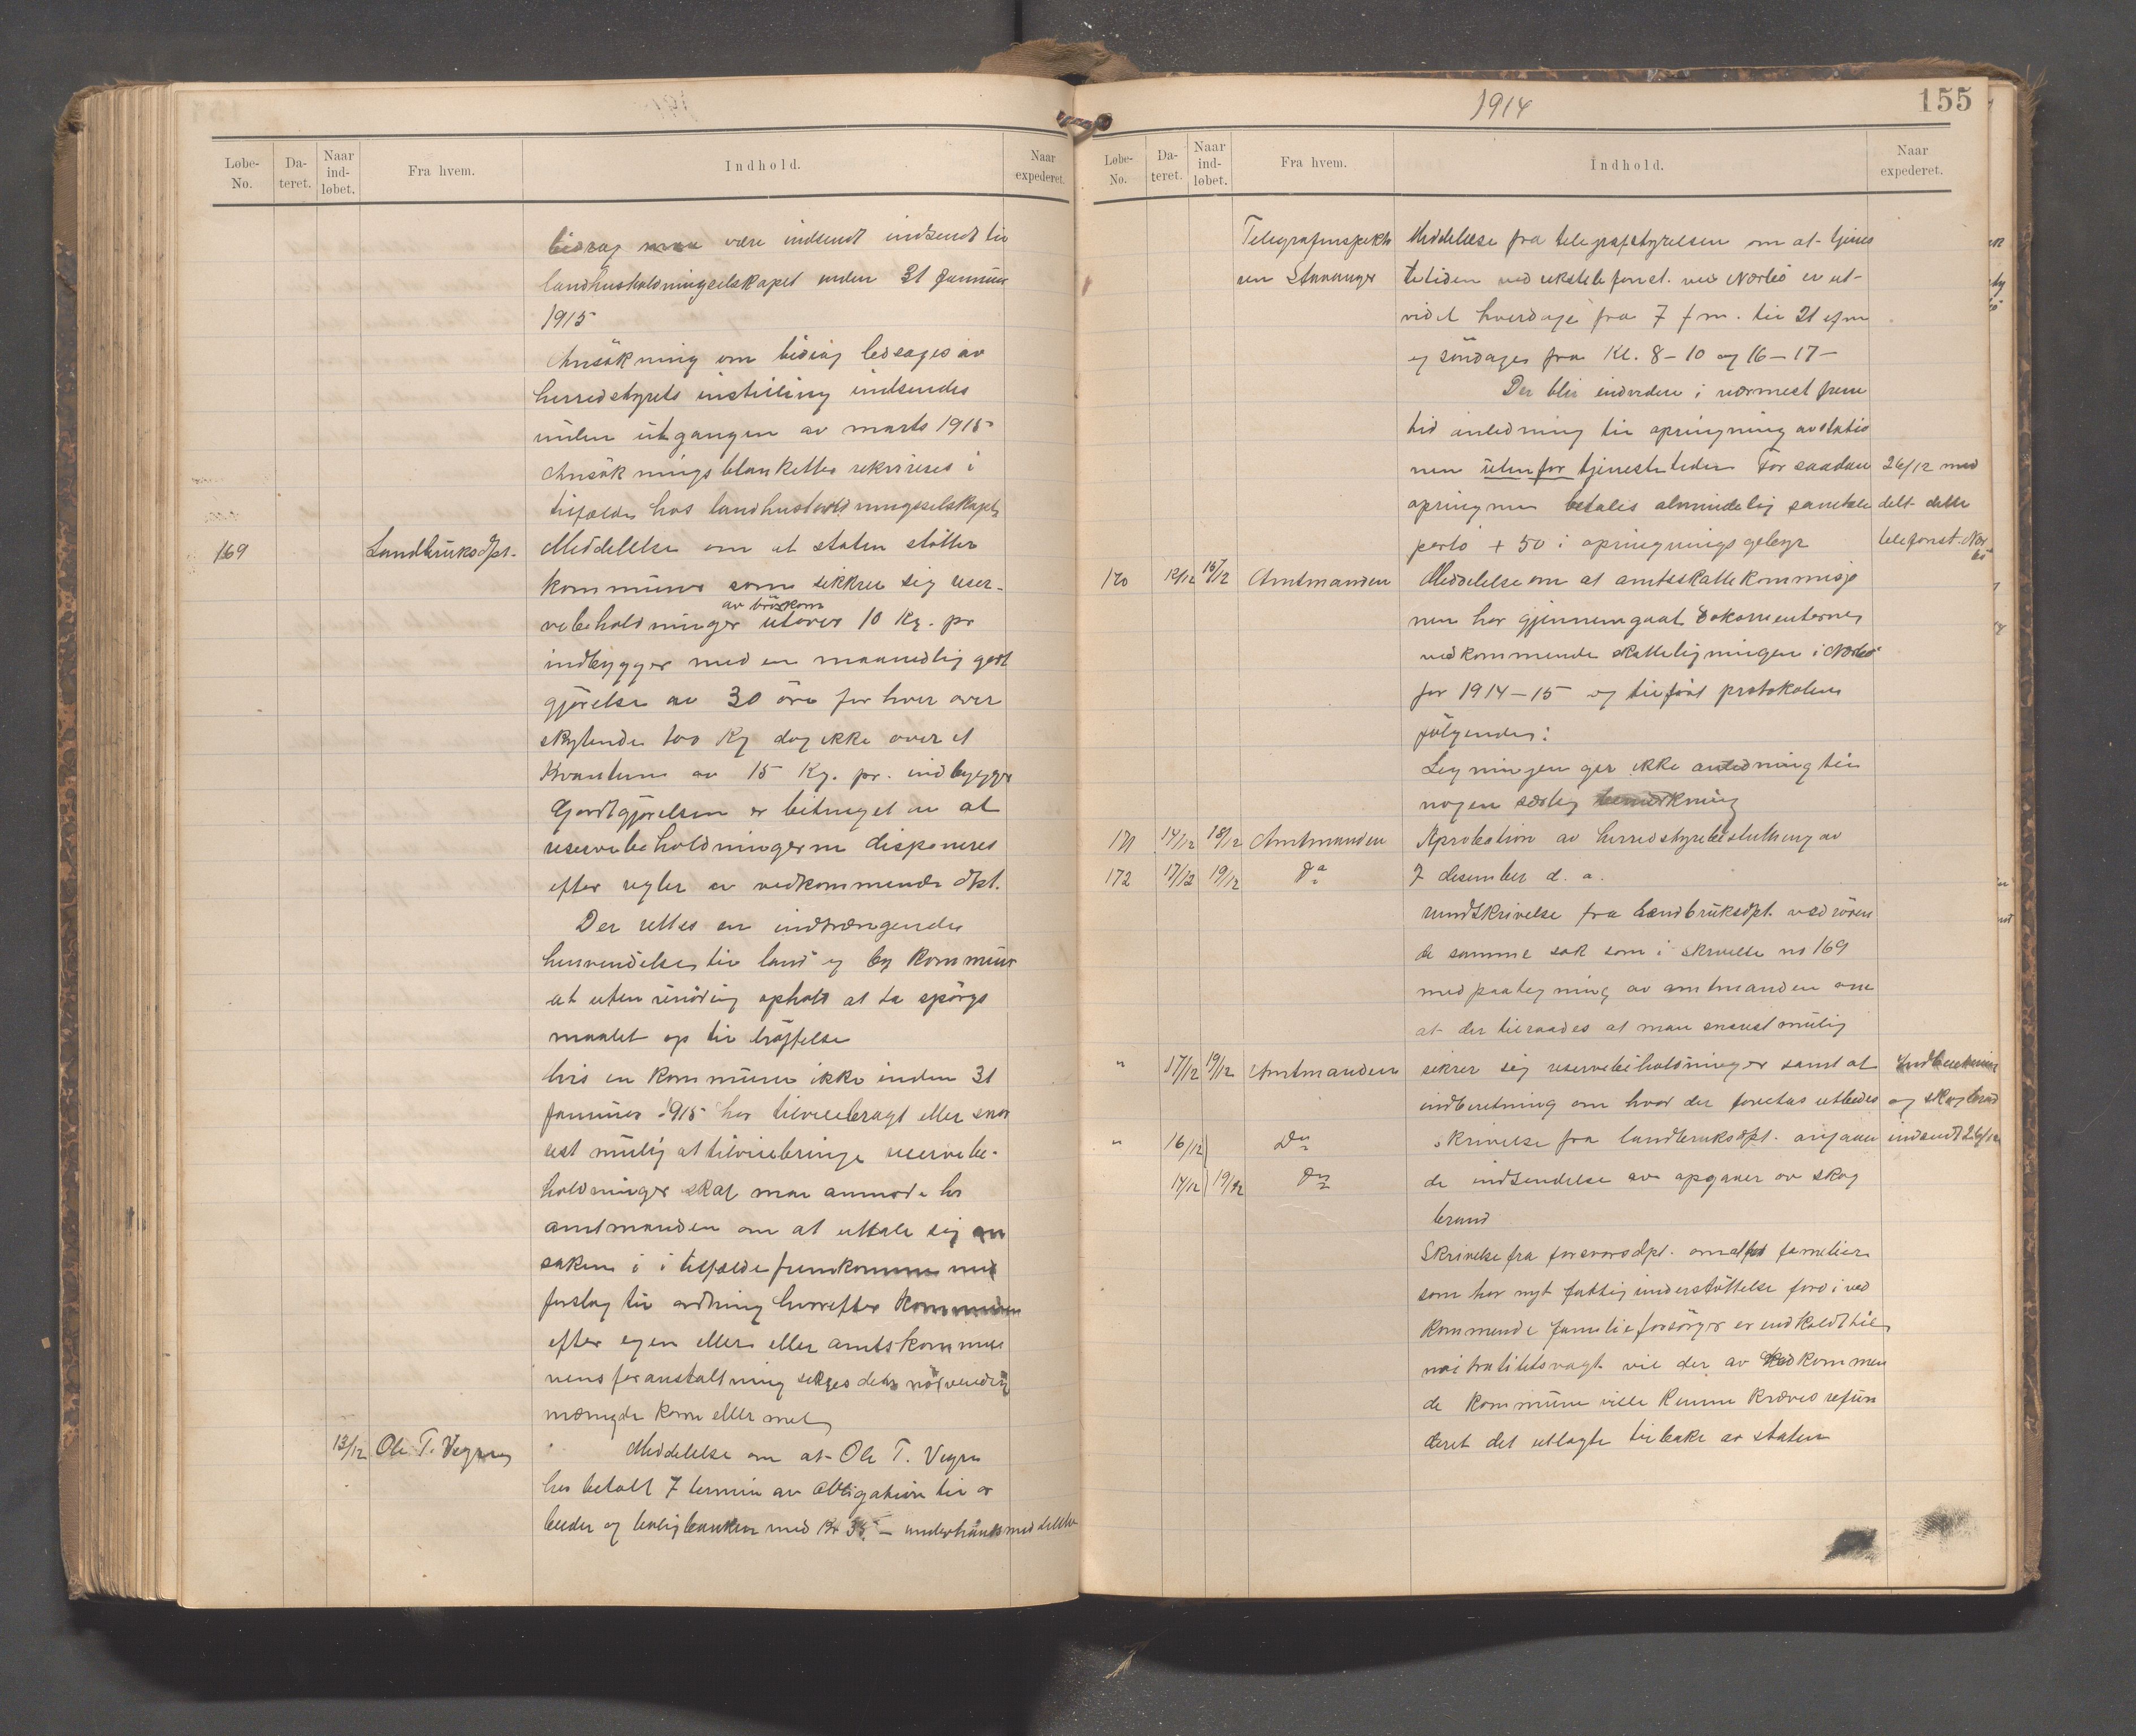 Løbe-No.
Da-teret.
Naar ind-løbet.
Fra hvem.
Indhold.
Naar expederet.
bidrag maa være indsendt indsendt til
landhusholdningselskapet inden 31 januar
1915
Ansökning om bidrag ledsages av
herredstyrets instilling indsendes
inden utgangen av marts 1915
Ansökningsblanketter rekvireres i
tilfælde hos landhusholdningsselskapet
169 Landbruksdpt. Meddelelse om at staten støtter
kommuner som sikkrer sig reser-
av brödkorn
vebeholdninger utover 10 Kg. pr
indbygger med en maanedlig godt
gjörelse av 30 öre for hver over
skytende 100 Kg dog ikke over et
Kvantum av 15 Kg. pr. indbygger
Godtgjörelsen er betinget av at
reservebeholdningerne disponeres
efter regler av vedkommende dpt.
Der rettes en indtrængende
henvendelse til land og by kommuner
at uten unödig ophold at ta spörgs
maalet op til dröftelse
hvis en kommune ikke inden 31
januar 1915 har tilveiebragt eller snar
est mulig at tilveiebringe reservebe-
holdninger skal man anmode hr
amtmanden om at uttale sig om
saken i i tilfælde fremkomme med
forslag til ordning hvorefter kommunen
efter egen eller eller amtskommu
nens foranstaltning sikres den nödvendig
mængde korn eller mel
13/12 Ole T. Vegre Meddelelse om at Ole T. Vegre
har betalt 7 termin av obligation til ar
beider og boligbanken med Kr 35 – underhaands meddelelse
1914
155
Løbe-No.
Da-teret.
Naar ind-løbet.
Fra hvem.
Indhold.
Naar expederet.
Telegrafinspektö Meddelelse fra telegrafstyrelsen om at tjenes
ren Stavanger tetiden ved rikstelefonst. ved Nærbö er ut-
videt hverdage fra 7 f m. til 21 efm
og söndage fra Kl. 8–10 og 16–17–
Der blir endvidere i nærmest frem
tid anledning til opringning av statio
nen utenfor tjenestetiden For saadan 26/12 med
opringning betales almindelig samtale delt dette
porto + 50 i opringningsgebyr telefonst. Nær
bö
170 12/12 16/12 Amtmanden Meddelelse om at amtsskattekommisjo
nen har gjennemgaat dokumenterne
vedkommende skatteligningen i Nærbö
for 1914–15 og tilfört protokolen
fölgende:
Ligningen gir ikke anledning til
nogen særlig bemerkning
171 14/12 18/12 Amtmanden Aprobation av herredstyrebeslutning av
172 17/12 19/12 Do 7 desember d. a.
rundskrivelse fra Landbruksdpt. vedrören
de samme sak som i skrivelse no 169
med paategning av amtmanden om
at der tilraades at man snarest mulig
" 17/12 19/12 Amtmanden sikrer sig reservebeholdninger samt at Indberetning
indberetning om hvad der foretas utbedes og skogbrand
" 16/12 Do skrivelse fra landbruksdpt. angaaen indsendt 26/12
14/12 19/12 Do de indsendelse av opgaver av skog
brand
Skrivelse fra forsvarsdpt. om at familier
som har nyt fattigunderstöttelse fordi ved
kommende familieforsörger er indkaldt til
nøitralitetsvagt vil der av vedkommen
de kommune ville kunne kræves refun
deret det utlagte tilbake av staten